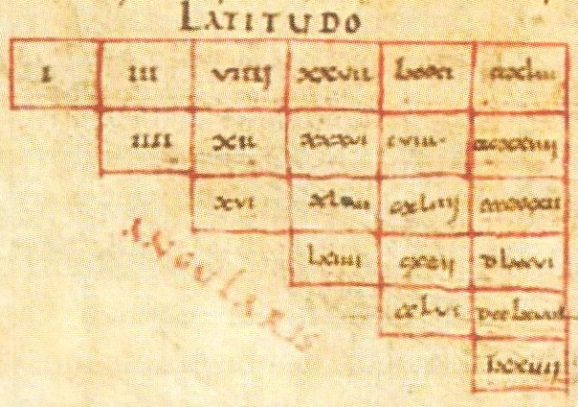 LATITUDO
I III VIIIJ XXVII LXXXI CCXLIII
IIII XII XXXVI CVIII CCCXXIIIJ
XVI XLVIII CXLIIIJ CCCCXXXII
LXIIII CXCIJ DLXXVI
CCLVI DCCLXVIII
ANGULARIS